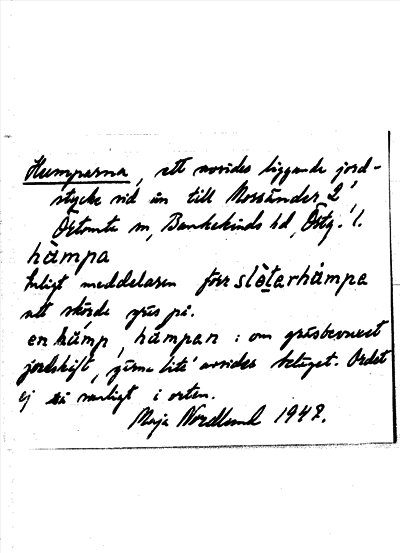 Humparna, ett avsides liggande jord-
stycke vid ån till Mossänder 2,
Örtomta sn, Bankekinds hd, Östg. l.
hàmpa
Enligt meddelaren förr slòtarhàmpa
att skörda gräs på.
en hàmp, hàmpan: om gräsbevuxet
jordskift, gärna lite avsides beläget. Ordet
ej så vanligt i orten.
Maja Nordlund 1947.